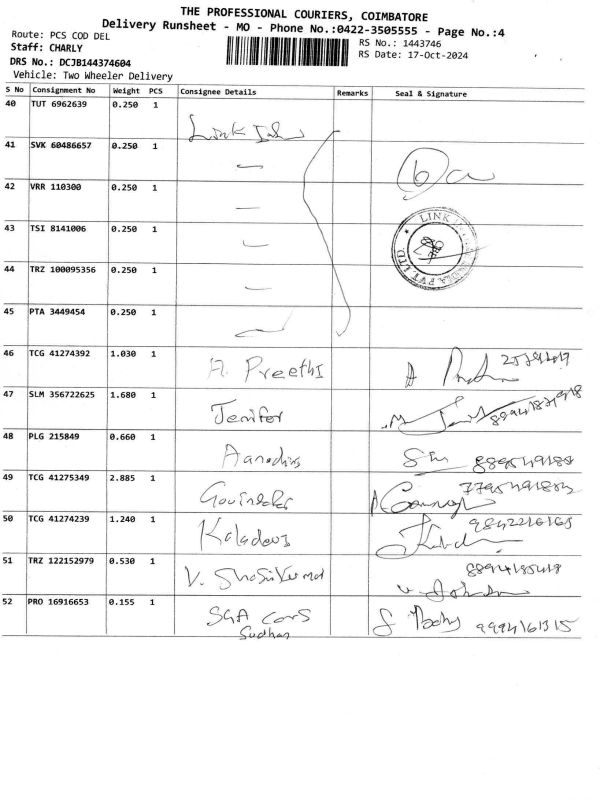 THE PROFESSIONAL COURIERS, COIMBATORE
Delivery Runsheet - MO - Phone No.:0422-3505555 - Page No.:4
Route: PCS COD DEL
Staff: CHARLY
DRS No.: DCJB144374604
Vehicle: Two Wheeler Delivery
RS No.: 1443746
RS Date: 17-Oct-2024
S No Consignment No Weight PCS Consignee Details Remarks Seal & Signature
40 TUT 6962639 0.250 1 Link
41 SVK 60486657 0.250 1
42 VRR 110300 0.250 1
43 TSI 8141006 0.250 1
LINK
PVT LTD
44 TRZ 100095356 0.250 1
45 PTA 3449454 0.250 1
46 TCG 41274392 1.030 1 A. Preethi
47 SLM 356722625 1.680 1 Jenifer
48 PLG 215849 0.660 1
49 TCG 41275349 2.885 1
50 TCG 41274239 1.240 1 9842216165
51 TRZ 122152979 0.530 1 V.
52 PRO 16916653 0.155 1 SGA Cars
Sudhan 9994161315